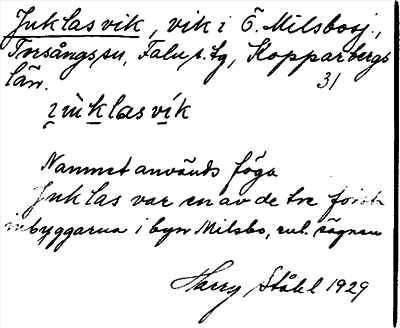 Juklasvik, vik i Ö. Milsbosj.,
Torsångs sn, Falu s. tg, Kopparbergs
län. 31
juklasvik
Namnet används föga
Juklas var en av de tre första
inbyggarna i byn Milsbo, enl. sägnen
Harry Ståhl 1929